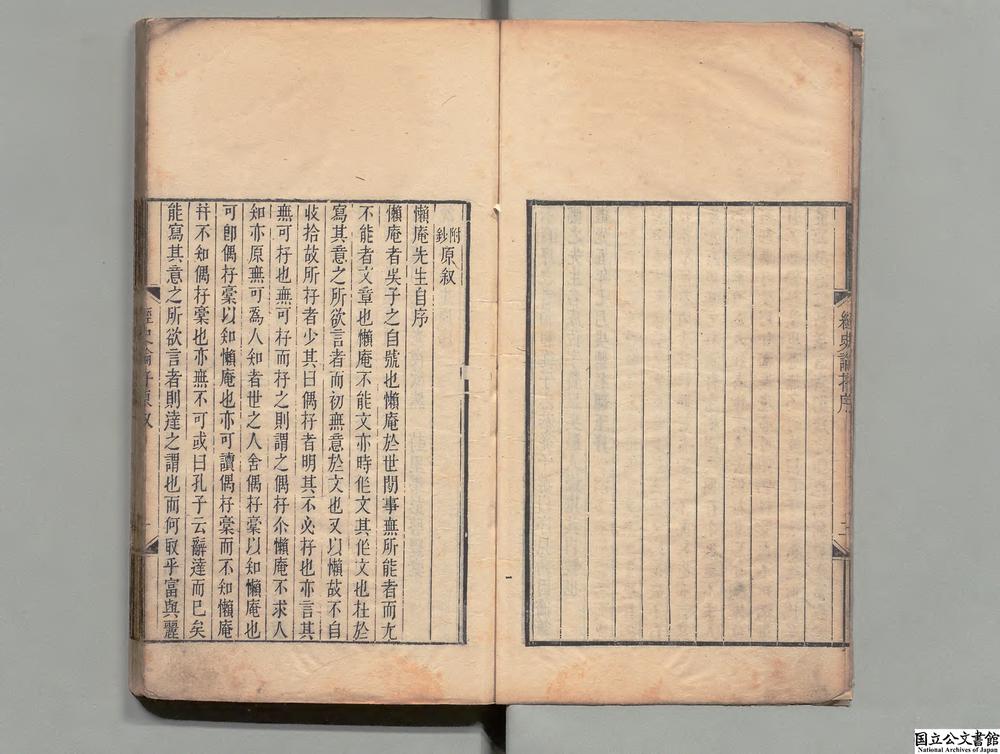 經史論存序
二
附鈔原叙
懶庵先生自序
懶庵者吳子之自號也懶庵於世間事無所能者而尤
不能者文章也懶庵不能文亦時作文其作文也在於
寫其意之所欲言者而初無意於文也又以懶故不自
收拾故所存者少其曰偶存者明其不必存也亦言其
無可存也無可存而存之則謂之偶存尒懶庵不求人
知亦原無可為人知者世之人舍偶存稾以知懶庵也
可卽偶存稾以知懶庵也亦可讀偶存稾而不知懶庵
幷不知偶存稾也亦無不可或曰孔子云辭達而已矣
能寫其意之所欲言者則達之謂也而何取乎富與麗
經史論存原叙
一
国立公文書館
National Archives of Japan